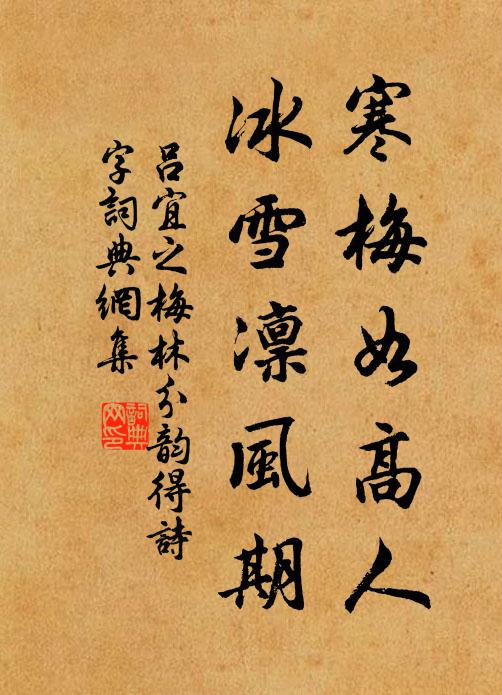 寒梅如高人
冰雪凛風期
吕宜之梅林分韵得詩
字詞典網集
詞典網印